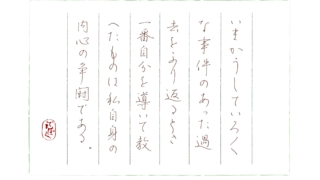 いまかうしていろ〳〵
な事件のあった過
去をふり返るとき
一番自分を導いて教
へたものは私自身の
内心の争闘である。